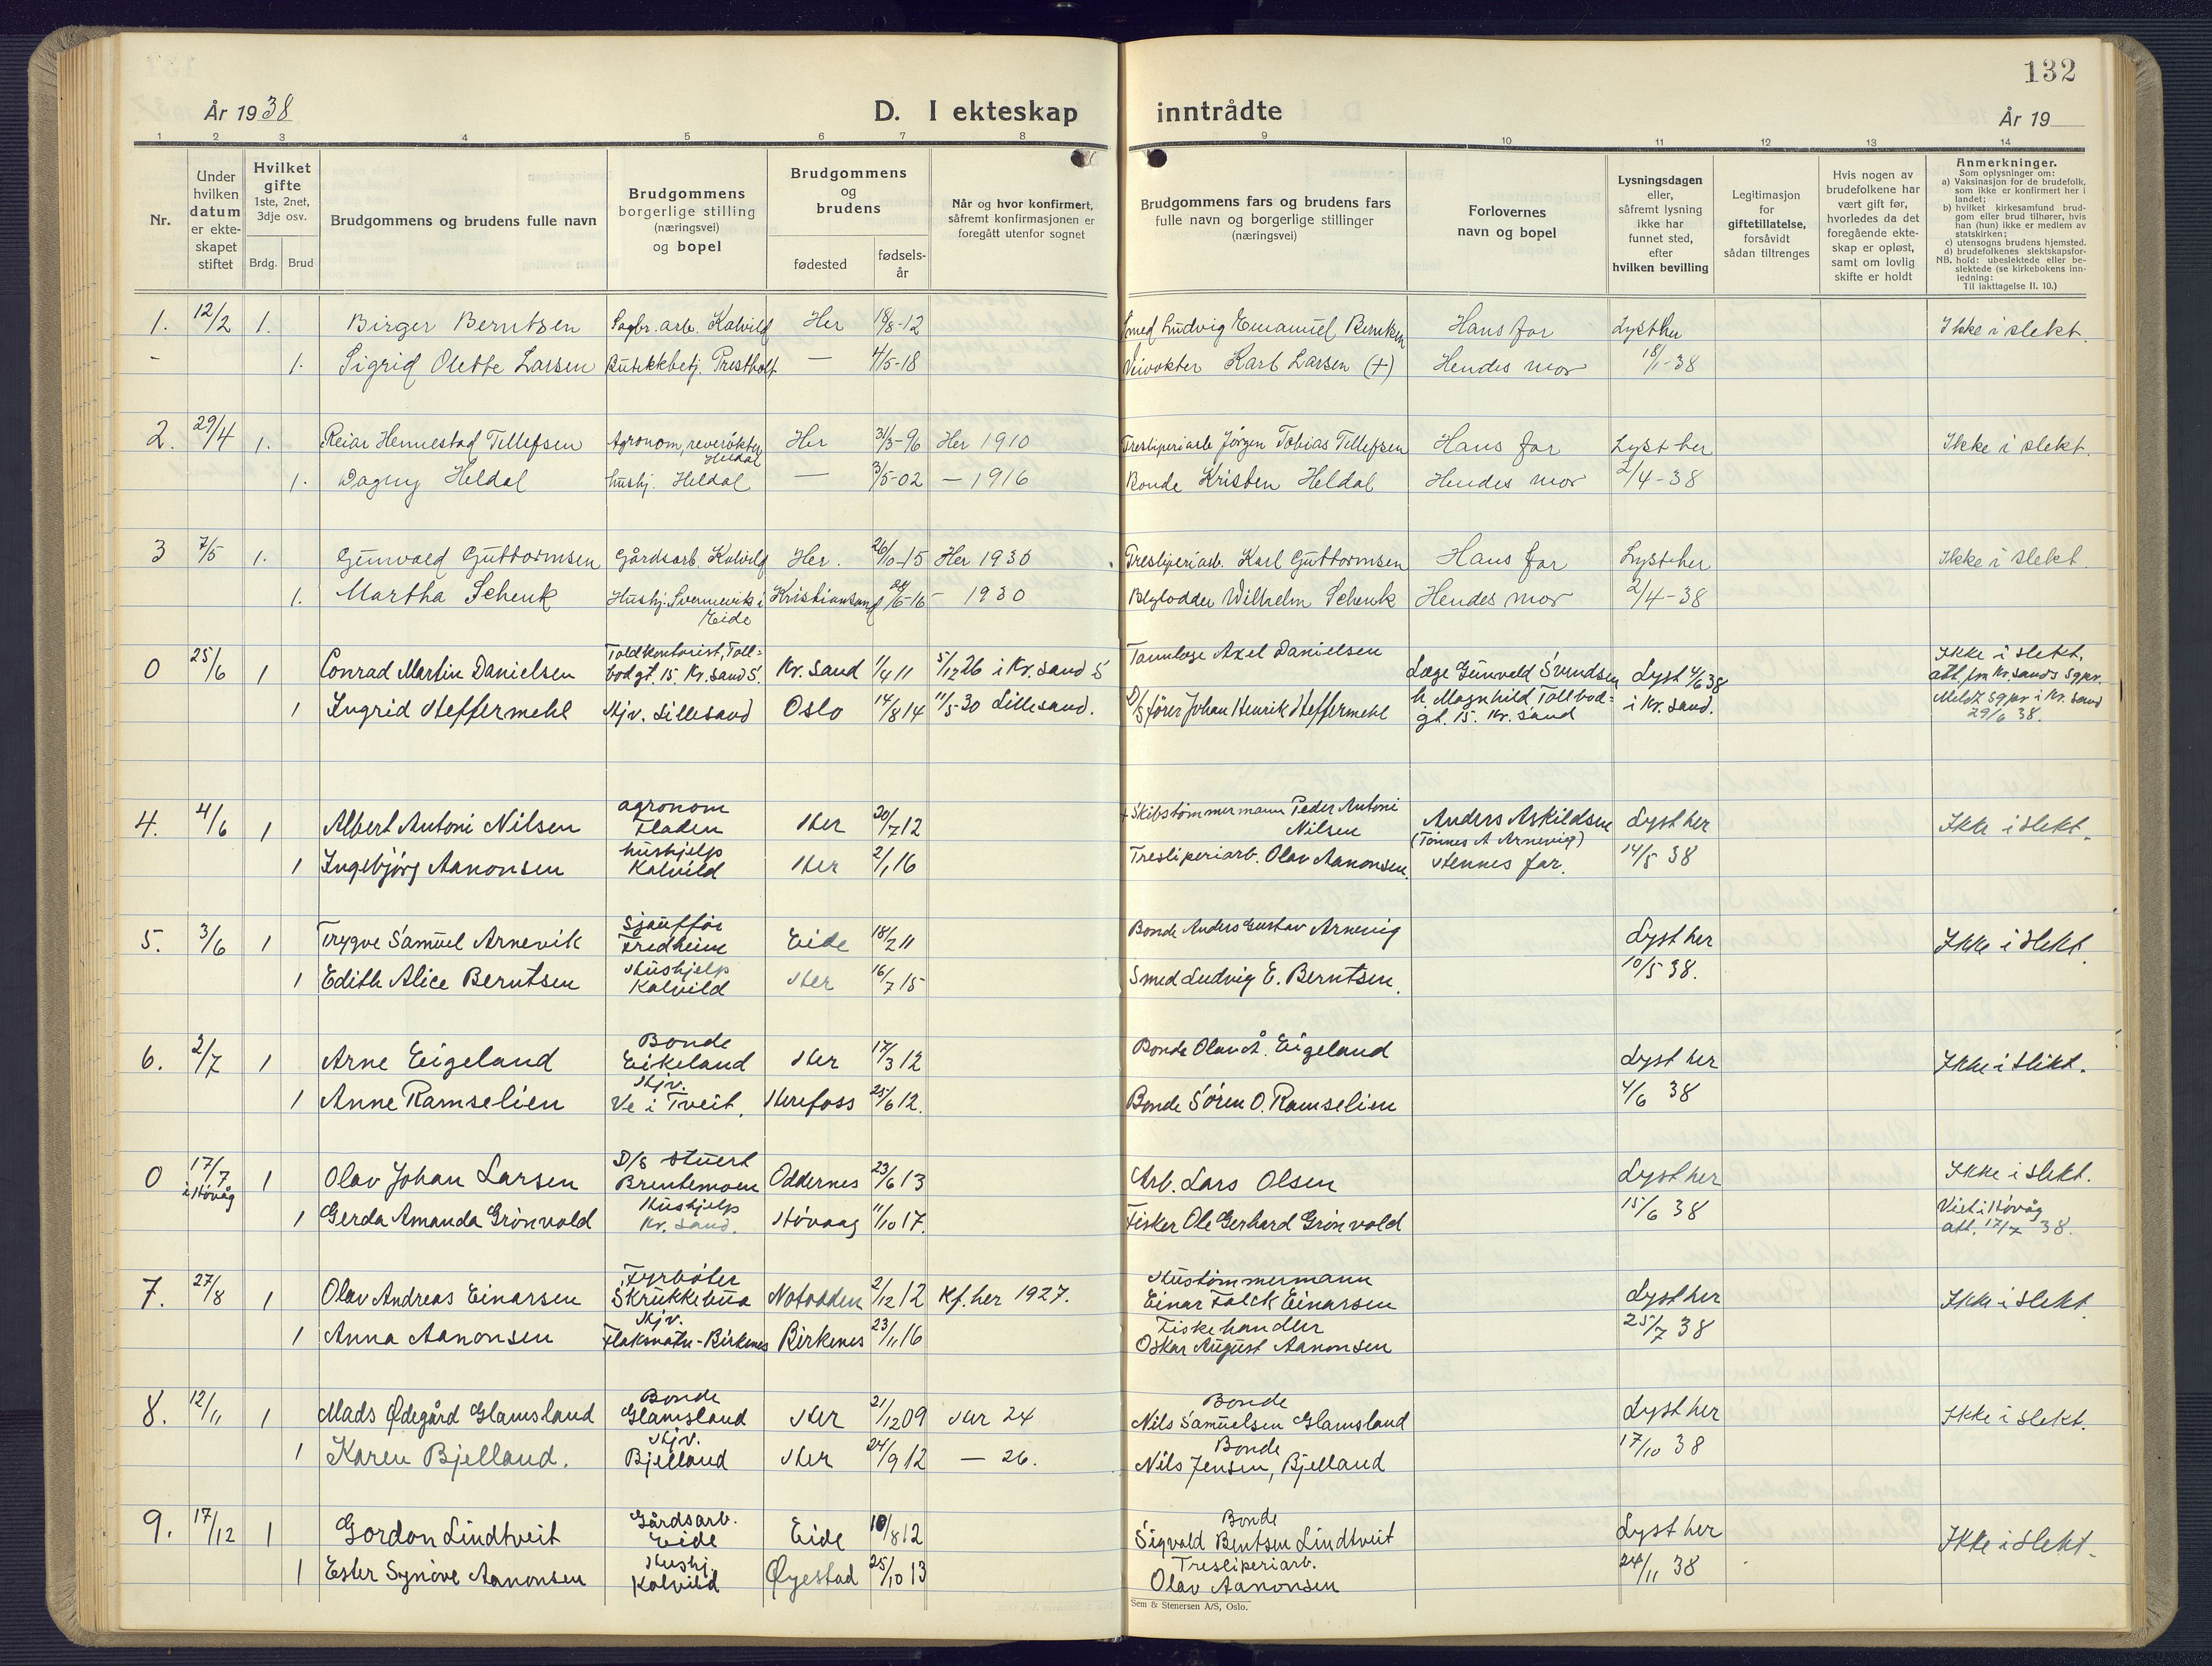 132
År 1938
D. I ekteskap inntrådte
År 19
1 2 3 4 5 6 7 8 9 10 11 12 13 14
Nr.
Under hvilken datum er ekteskapet stiftet
Hvilket gifte 1ste, 2net, 3dje osv.
Brdg. Brud
Brudgommens og brudens fulle navn
Brudgommens borgerlige stilling (næringsvei) og bopel
Brudgommens og brudens
fødested
fødselsår
Når og hvor konfirmert, såfremt konfirmasjonen er foregått utenfor sognet
Brudgommens fars og brudens fars fulle navn og borgerlige stillinger (næringsvei)
Forlovernes navn og bopel
Lysningsdagen eller, såfremt lysning ikke har funnet sted, efter hvilken bevilling
Legitimasjon for giftetillatelse, forsåvidt sådan tiltrenges
Hvis nogen av brudefolkene har vært gift før, hvorledes da det foregående ekteskap er opløst, samt om lovlig skifte er holdt
Anmerkninger.
Som oplysninger om:
a) Vaksinasjon for de brudefolk, som ikke er konfirmert her i landet;
b) hvilket kirkesamfund brudgom eller brud tilhører, hvis han (hun) ikke er medlem av statskirken;
c) utensogns brudens hjemsted.
d) brudefolkenes slektskapsforhold: ubeslektede eller beslektede (se kirkebokens innledning:
NB.
Til iakttagelse II. 10.)
1. 12/2 1. Birger Berntsen Sagbr.arb. Kalvild Her 18/8-12 Smed Ludvig Emanuel Berntsen Hans far Lyst her Ikke i slekt.
- 1. Sigrid Olette Larsen Butikkbetj. Prestholt — 4/5-18 Veivokter Karl Larsen (+) Hendes mor 18/1-38
2. 29/4 1. Reiar Hennestad Tellefsen Agronom, revevokter Heldal Her 3/3-96 Her 1910 Tresliperiarb Jörgen Tobias Tellefsen Hans far Lyst her Ikke i slekt.
1. Dagny Heldal hushj. Heldal — 3/5-02 — 1916 Bonde Kristen Heldal Hendes mor 2/4-38
3 7/5 1. Gunvald Guttormsen Gårdsarb. Kalvild Her. 26/10-15 Her 1930 Tresliperiarb. Karl Guttormsen Hans far Lyst her Ikke i slekt.
1. Martha Schenk Hushj. Svennevik i Eide Kristiansand /6-16 - 1930 Wilhelm Schenk Hendes mor 2/4-38
0 25/6 1 Conrad Martin Danielsen Toldkontorist, Tollbodgt. 15. Kr.sand S. Kr. Sand 1/4 11 5/12 26 i Kr. sand S Tannlæge Axel Danielsen Læge Gunvald Svendsen Lyst 4/6 38 Ikke i slekt. att. fra Kr.sands Sgpr.
1 Ingrid Heffermehl Hjv. Lillesand Oslo 14/8 14 11/5-30 Lillesand. D/S fører Johan Henrik Heffermehl h. Magnhild, Tollbodgt. 15. Kr. sand i Kr. sand. Meldt Sgpr i Kr. sand 29/6 38.
4. 4/6 1 Albert Antoni Nilsen agronom Fladen Her 20/7 12 + Skibstömmermann Peder Antoni Nilsen Anders Askildsen (Tönnes A Arnevig) Lyst her Ikke i slekt.
1 Ingebjørg Aanonsen hushjelp Kalvild Her 2/1 16 Tresliperiarb. Olav Aanonsen. Hennes far. 14/5 38
5. 3/6 1 Trygve Samuel Arnevik Sjauffør Fredheim Eide 18/2 11 Bonde Anders Gustav Arnevig Lyst her Ikke i slekt.
1 Edith Alice Berntsen Hushjelp Kalvild Her 16/7 15 Smed Ludvig E. Berntsen. 10/5 38.
6. 2/7 1 Arne Eigeland Bonde Eikeland Her 17/3 12 Bonde Olav A. Eigeland Lyst her Ikke i slekt.
1 Anne Ramselien Hjv. Ve i Tveit. Herefoss 25/6 12. Bonde Sören O. Ramselien 4/6 38
0 17/7 i Høvåg 1 Olav Johan Larsen D/S stuert Brentemoen Oddernes 23/6 13 Arb. Lars Olsen Lyst her Ikke i slekt.
1 Gerda Amanda Grönvold Hushjelp Kr. Sand. Høvaag 11/10 17. Fisker Ole Gerhard Grönvold 15/6 38 Viet i Høvåg att. 17/7 38.
7. 27/8 1 Olav Andreas Einarsen Fyrböter Skrukkebua Notodden 2/12 12 Kf. her 1927. Hustömmermann Einar Falck Einarsen Lyst her Ikke i slekt
1 Anna Aanonsen Hjv. Flaksvatn-Birkenes Birkenes 23/11 16 Fiskehandler Oskar August Aanonsen 25/7 38
8. 12/11 1 Mads Ødegård Glamsland Bonde Glamsland Her 21/12 09 Her 24 Bonde Nils Samuelsen Glamsland Lyst her Ikke i slekt.
1 Karen Bjelland. Hjv. Bjelland Her 24/9 12 — 26. Bonde Nils Jensen, Bjelland 17/10 38
9. 17/12 1 Gordon Lindtveit Gårdsarb. Eide Eide 10/8 12 Bonde Sigvald Bentsen Lindtveit Lyst her Ikke i slekt.
1 Ester Synöve Aanonsen Hushj. Kalvild Øyestad 25/10 13 Tresliperiarb. Olav Aanonsen 24/11 38
Sem & Stenersen A/S, Oslo.